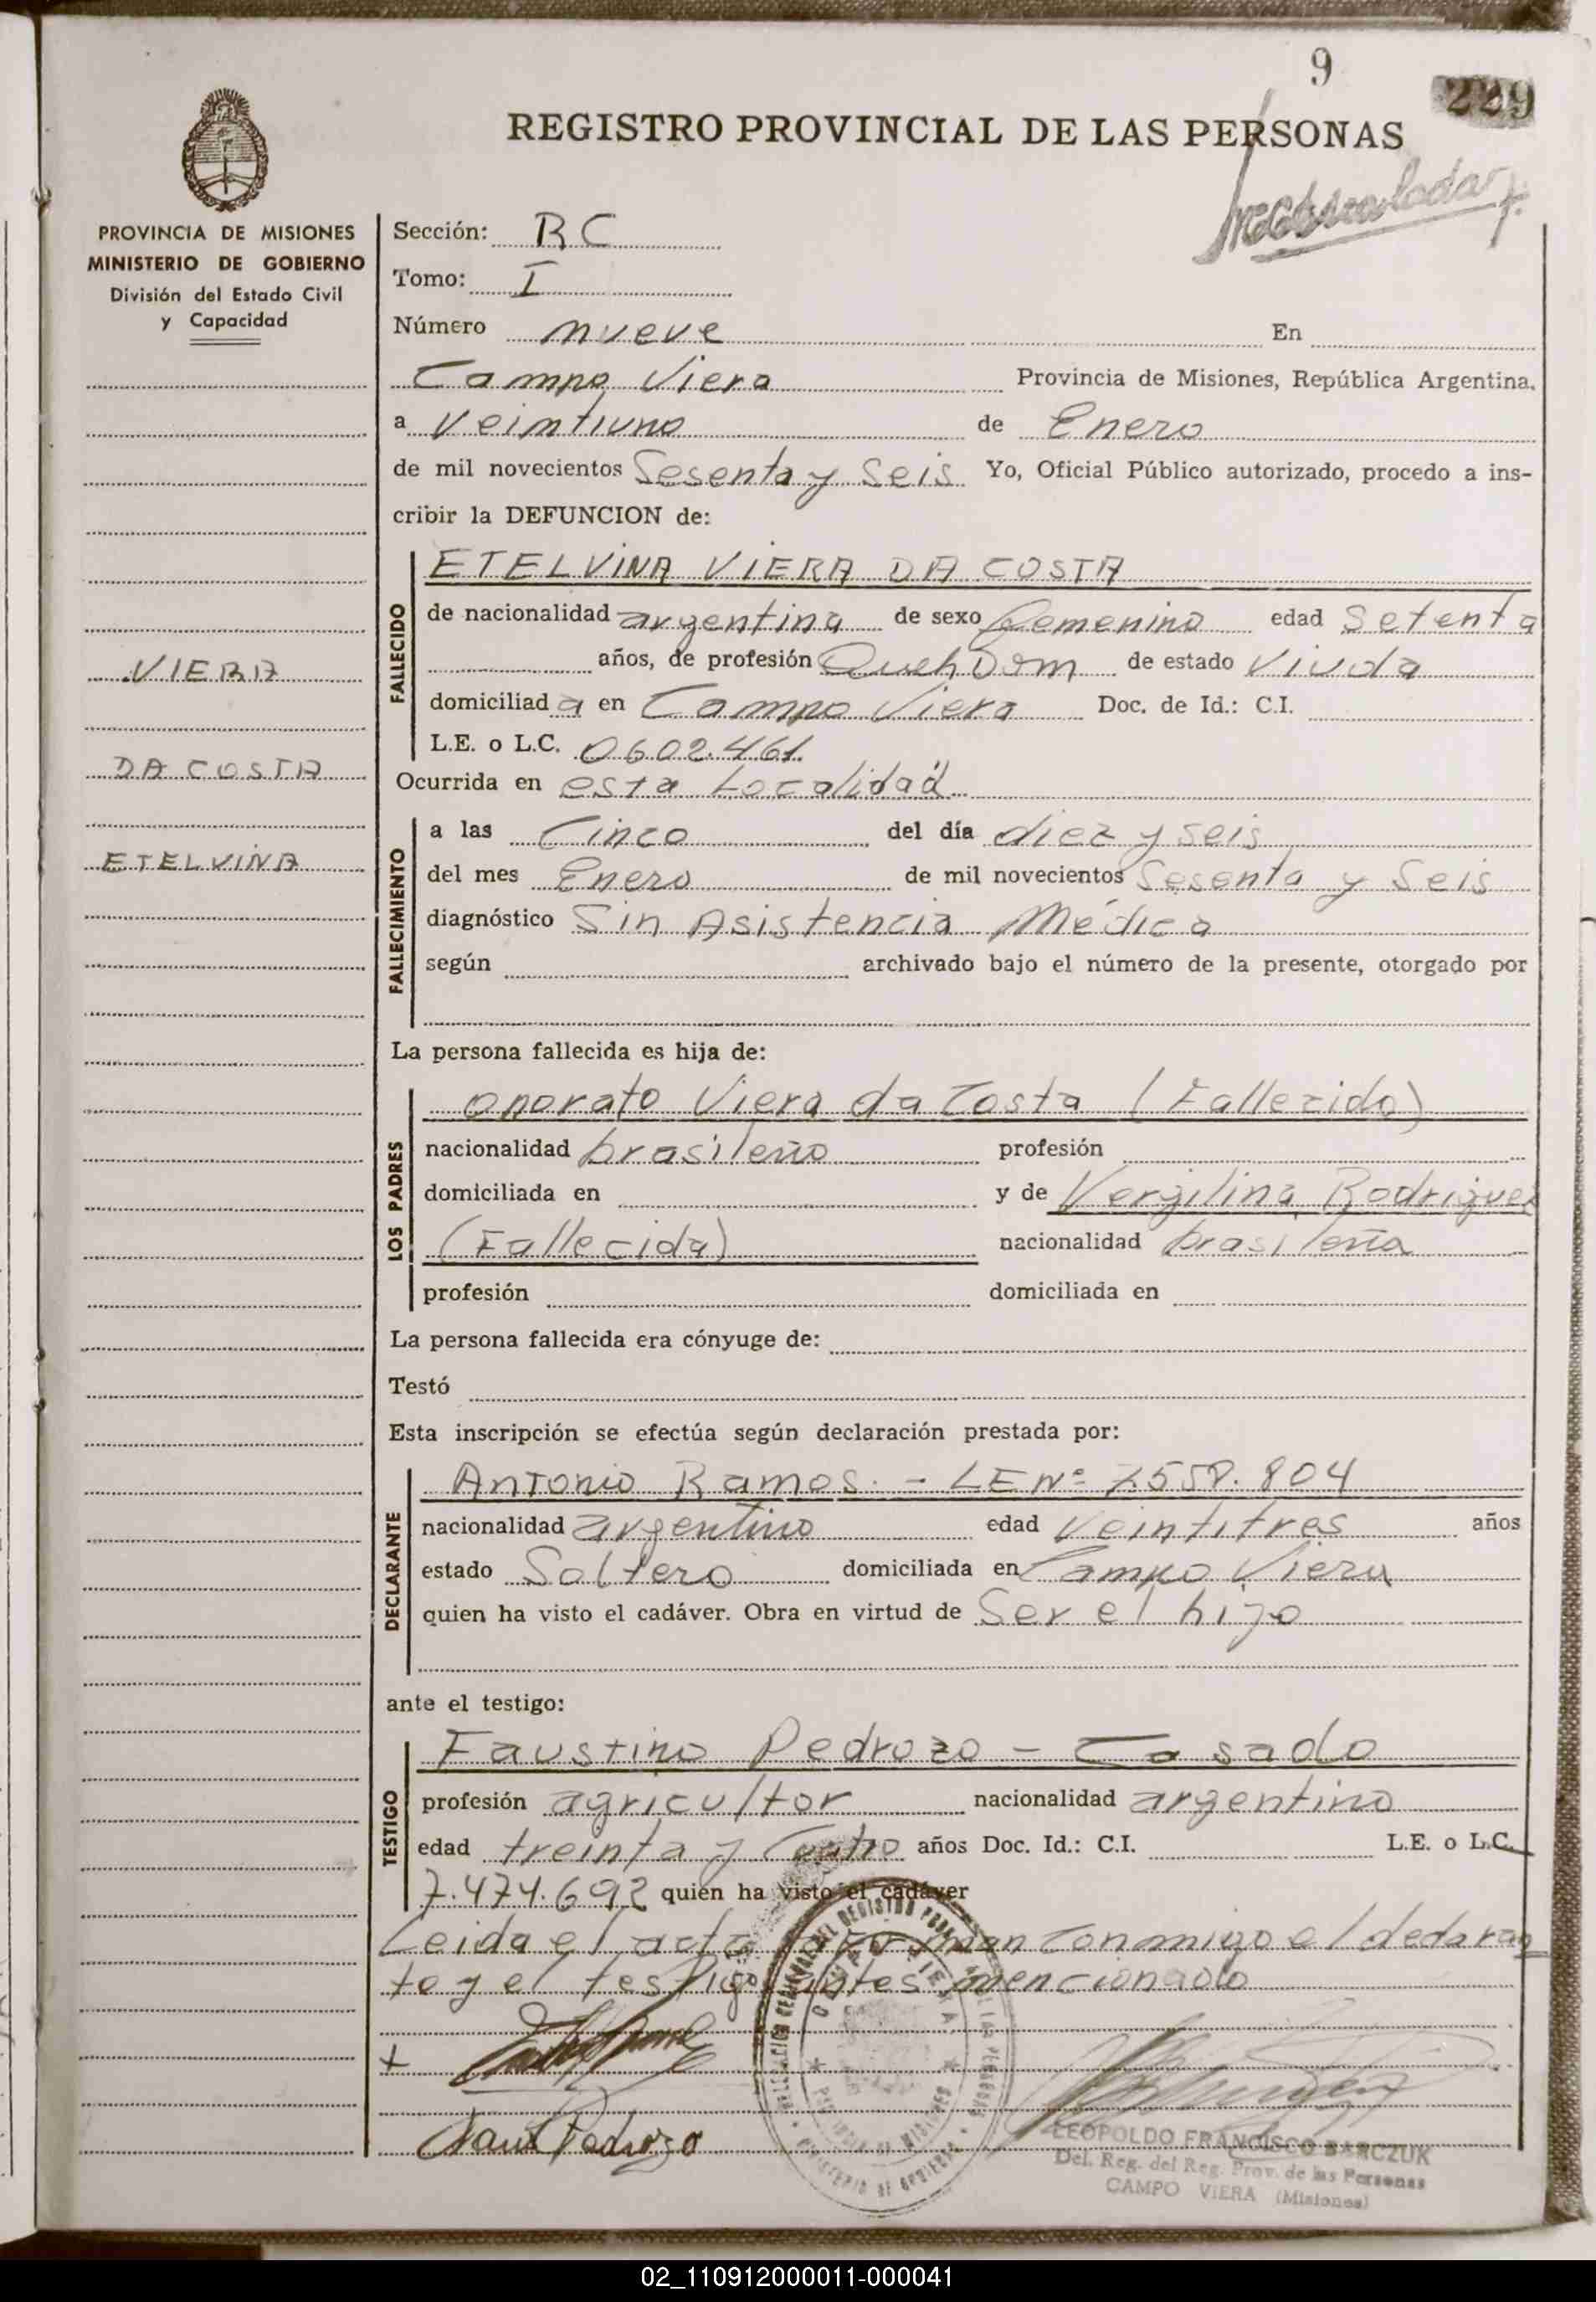 9
229
REGISTRO PROVINCIAL DE LAS PERSONAS
PROVINCIA DE MISIONES
MINISTERIO DE GOBIERNO
División del Estado Civil
y Capacidad
VIERA
DA COSTA
ETELVINA
Sección: RC
Tomo: I
Número nueve En
Campo Viera Provincia de Misiones, República Argentina.
a veintiuno de Enero
de mil novecientos Sesenta y Seis Yo, Oficial Público autorizado, procedo a ins-
cribir la DEFUNCION de:
FALLECIDO
ETELVINA VIERA DA COSTA
de nacionalidad argentina de sexo femenino edad Setenta
años, de profesión Queh Dom de estado Viuda
domiciliad a en Campo Viera Doc. de Id.: C.I.
L.E. o L.C. 0602.461.
Ocurrida en esta Localidad
FALLECIMIENTO
a las Cinco del día diez y seis
del mes Enero de mil novecientos Sesenta y Seis
diagnóstico Sin Asistencia Médica
según archivado bajo el número de la presente, otorgado por
La persona fallecida es hija de:
LOS PADRES
Onorato Viera da Costa (Fallecido)
nacionalidad brasileño profesión
domiciliada en y de Vergilina Rodriguez
(Fallecida) nacionalidad brasileña
profesión domiciliada en
La persona fallecida era cónyuge de:
Testó
Esta inscripción se efectúa según declaración prestada por:
DECLARANTE
Antonio Ramos. - LE Nº 7.558.804
nacionalidad argentino edad Veintitres años
estado Soltero domiciliada en Campo Viera
quien ha visto el cadáver. Obra en virtud de Ser el hijo
ante el testigo:
TESTIGO
Faustino Pedrozo - Casado
profesión agricultor nacionalidad argentino
edad treinta y Cuatro años Doc. Id.: C.I. L.E. o L.C.
7.474.692 quien ha visto el cadáver
Leida el acta firman conmigo el declaran
te y el testigo antes mencionado
Faust Pedrozo
CAMPO VIERA
PROVINCIA DE MISIONES
MINISTERIO DE GOBIERNO
LEOPOLDO FRANCISCO BARCZUK
Del. Reg. del Reg. Prov. de las Personas
CAMPO VIERA (Misiones)
02_110912000011-000041